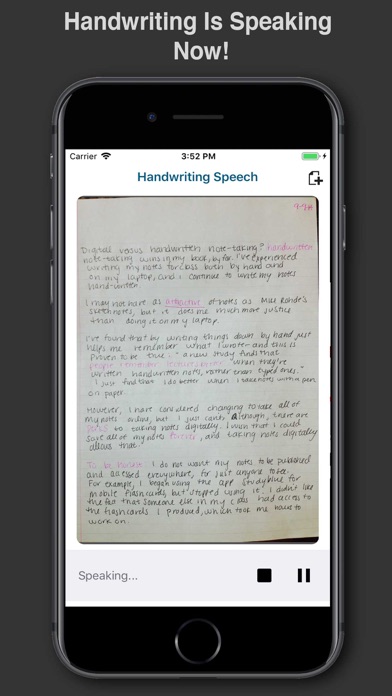 Handwriting Is Speaking
Now!
Carrier
3:52 PM
Handwriting Speech
9-9-14
Digital versus handwritten note-taking? handwritten
note-taking wins in my book, by far. I've experienced
writing my notes for class both by hand and
on my laptop, and i continue to write my notes
hand-written.
I may not have as attractive of notes as Mike Rohde's
sketchnotes, but it does me much more justice
than doing it on my laptop.
I've found that by writing things down by hand just
helps me remember what I wrote - and this is
proven to be true. "a new study finds that
people remember lectures better when they've
written handwritten notes, rather than typed ones."
I just find that i do better when I take notes with a pen
on paper.
However, I have considered changing to take all of
my notes online, but I just can't. Although, there are
to taking notes digitally. I wish that I could
save all of my notes forever, and taking notes digitally
allows that.
To be honest I do not want my notes to be published
and accessed everywhere, for just anyone to see.
For example, I began using the app Studyblue for
mobile flashcards, but stopped using it. I didn't like
the fact that someone else in my class had access to
the flashcards I produced, which took me hours to
work on.
Speaking...